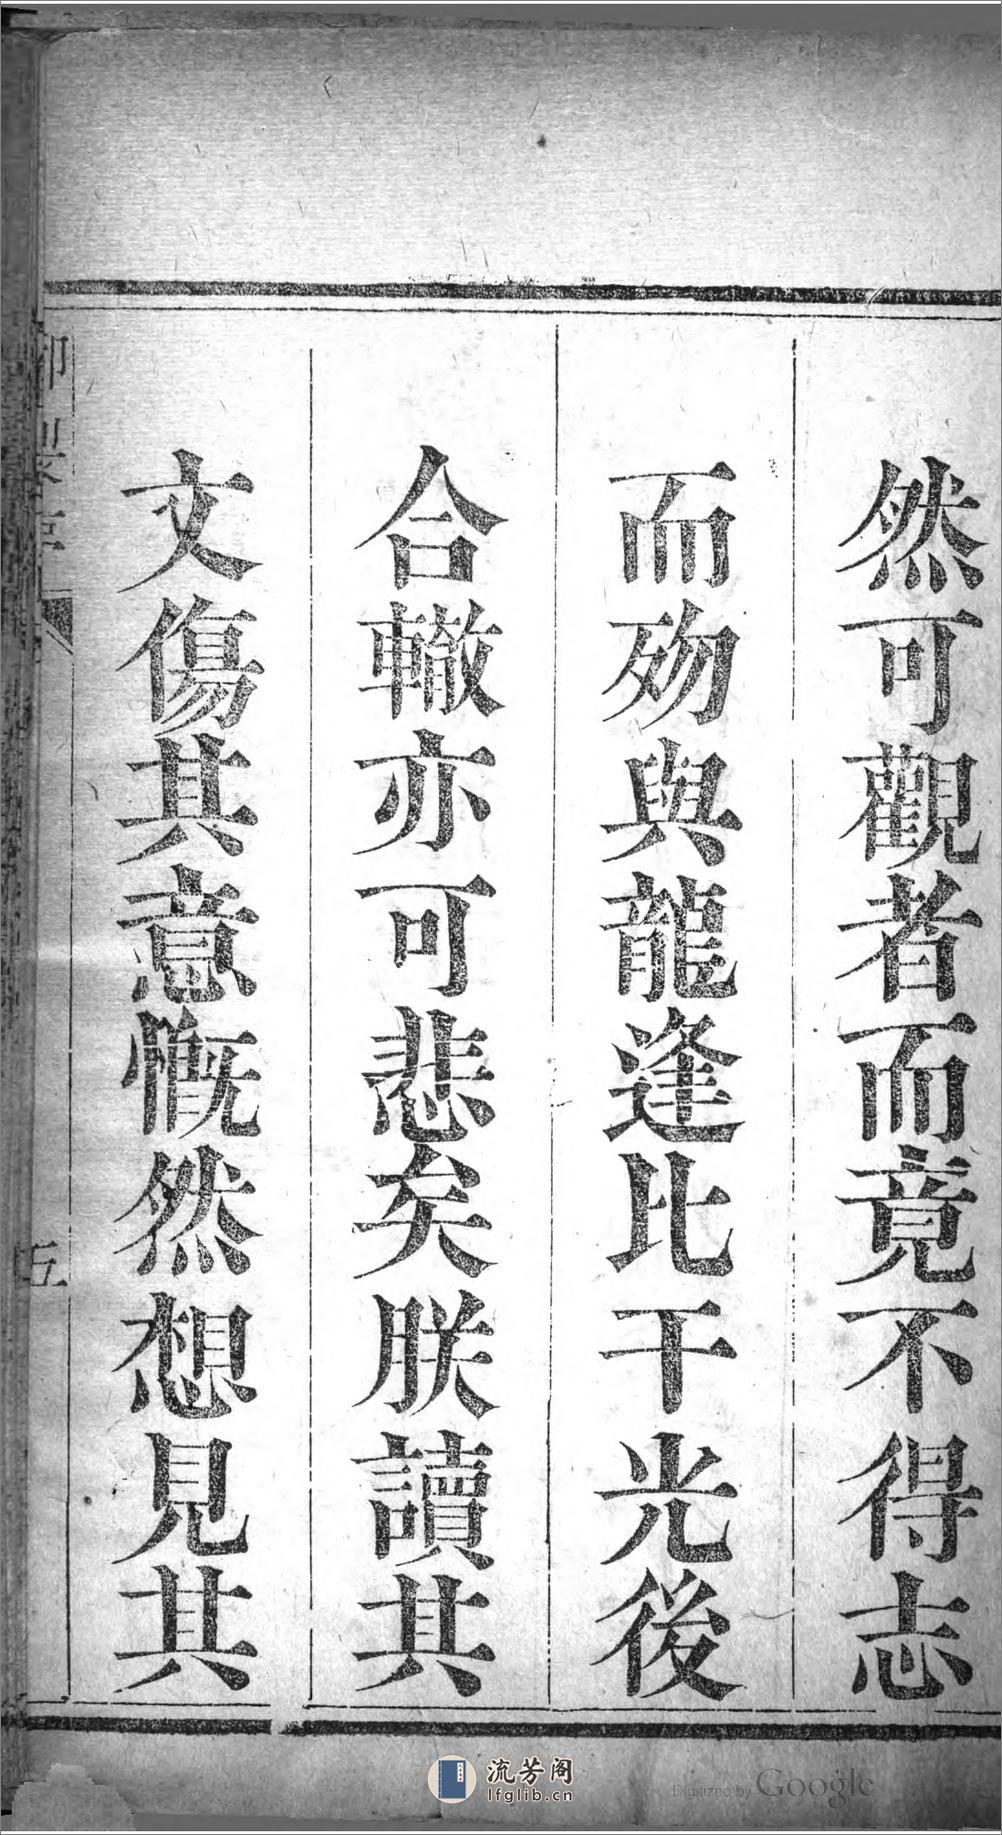 然可觀者而竟不得志
而歿與龍逢比干光後
合轍亦可悲矣朕讀其
文傷其意慨然想見其
御製序
五
流芳阁
lfglib.cn
Digitized by Google